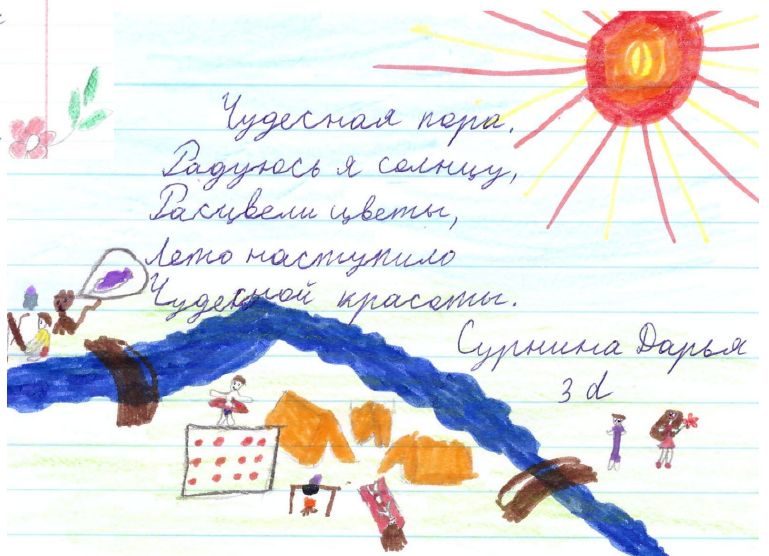 Чудесная пора.
Радуюсь я солнцу,
Расцвели цветы,
Лето наступило
Чудесной красоты.
Сурнина Дарья
3 d